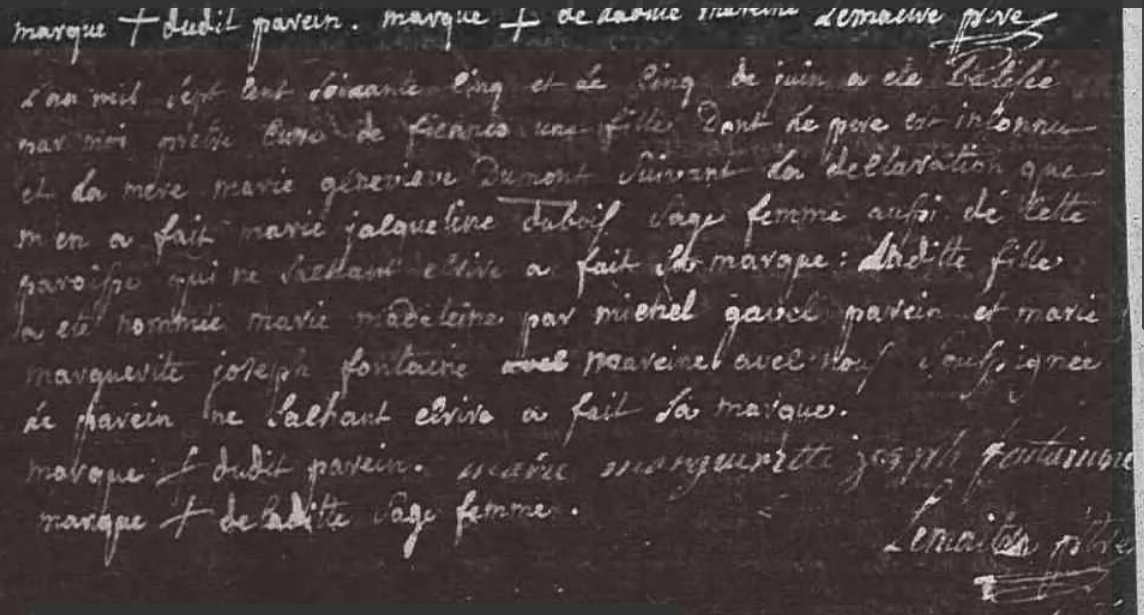 marque + dudit parein. marque + de ladite mareine Lemaitre ptre
L'an mil sept cent soixante cinq et le cinq de juin a eté batisée
par moi prêtre curé de fiennes une fille dont le pere est inconnu
et la mere marie genevieve Dumont suivant la declaration que
m'en a fait marie jacqueline dubois sage femme aussi de cette
paroisse qui ne sachant ecrire a fait sa marque : laditte fille
a eté nommée marie madeleine par michel gavel parein et marie
marguerite joseph fontaine mareine avec nous soussignée
le parein ne sachant ecrire a fait sa marque.
marque + dudit parein. marie margueritte joseph fontainne
marque + de laditte sage femme.
Lemaitre ptre